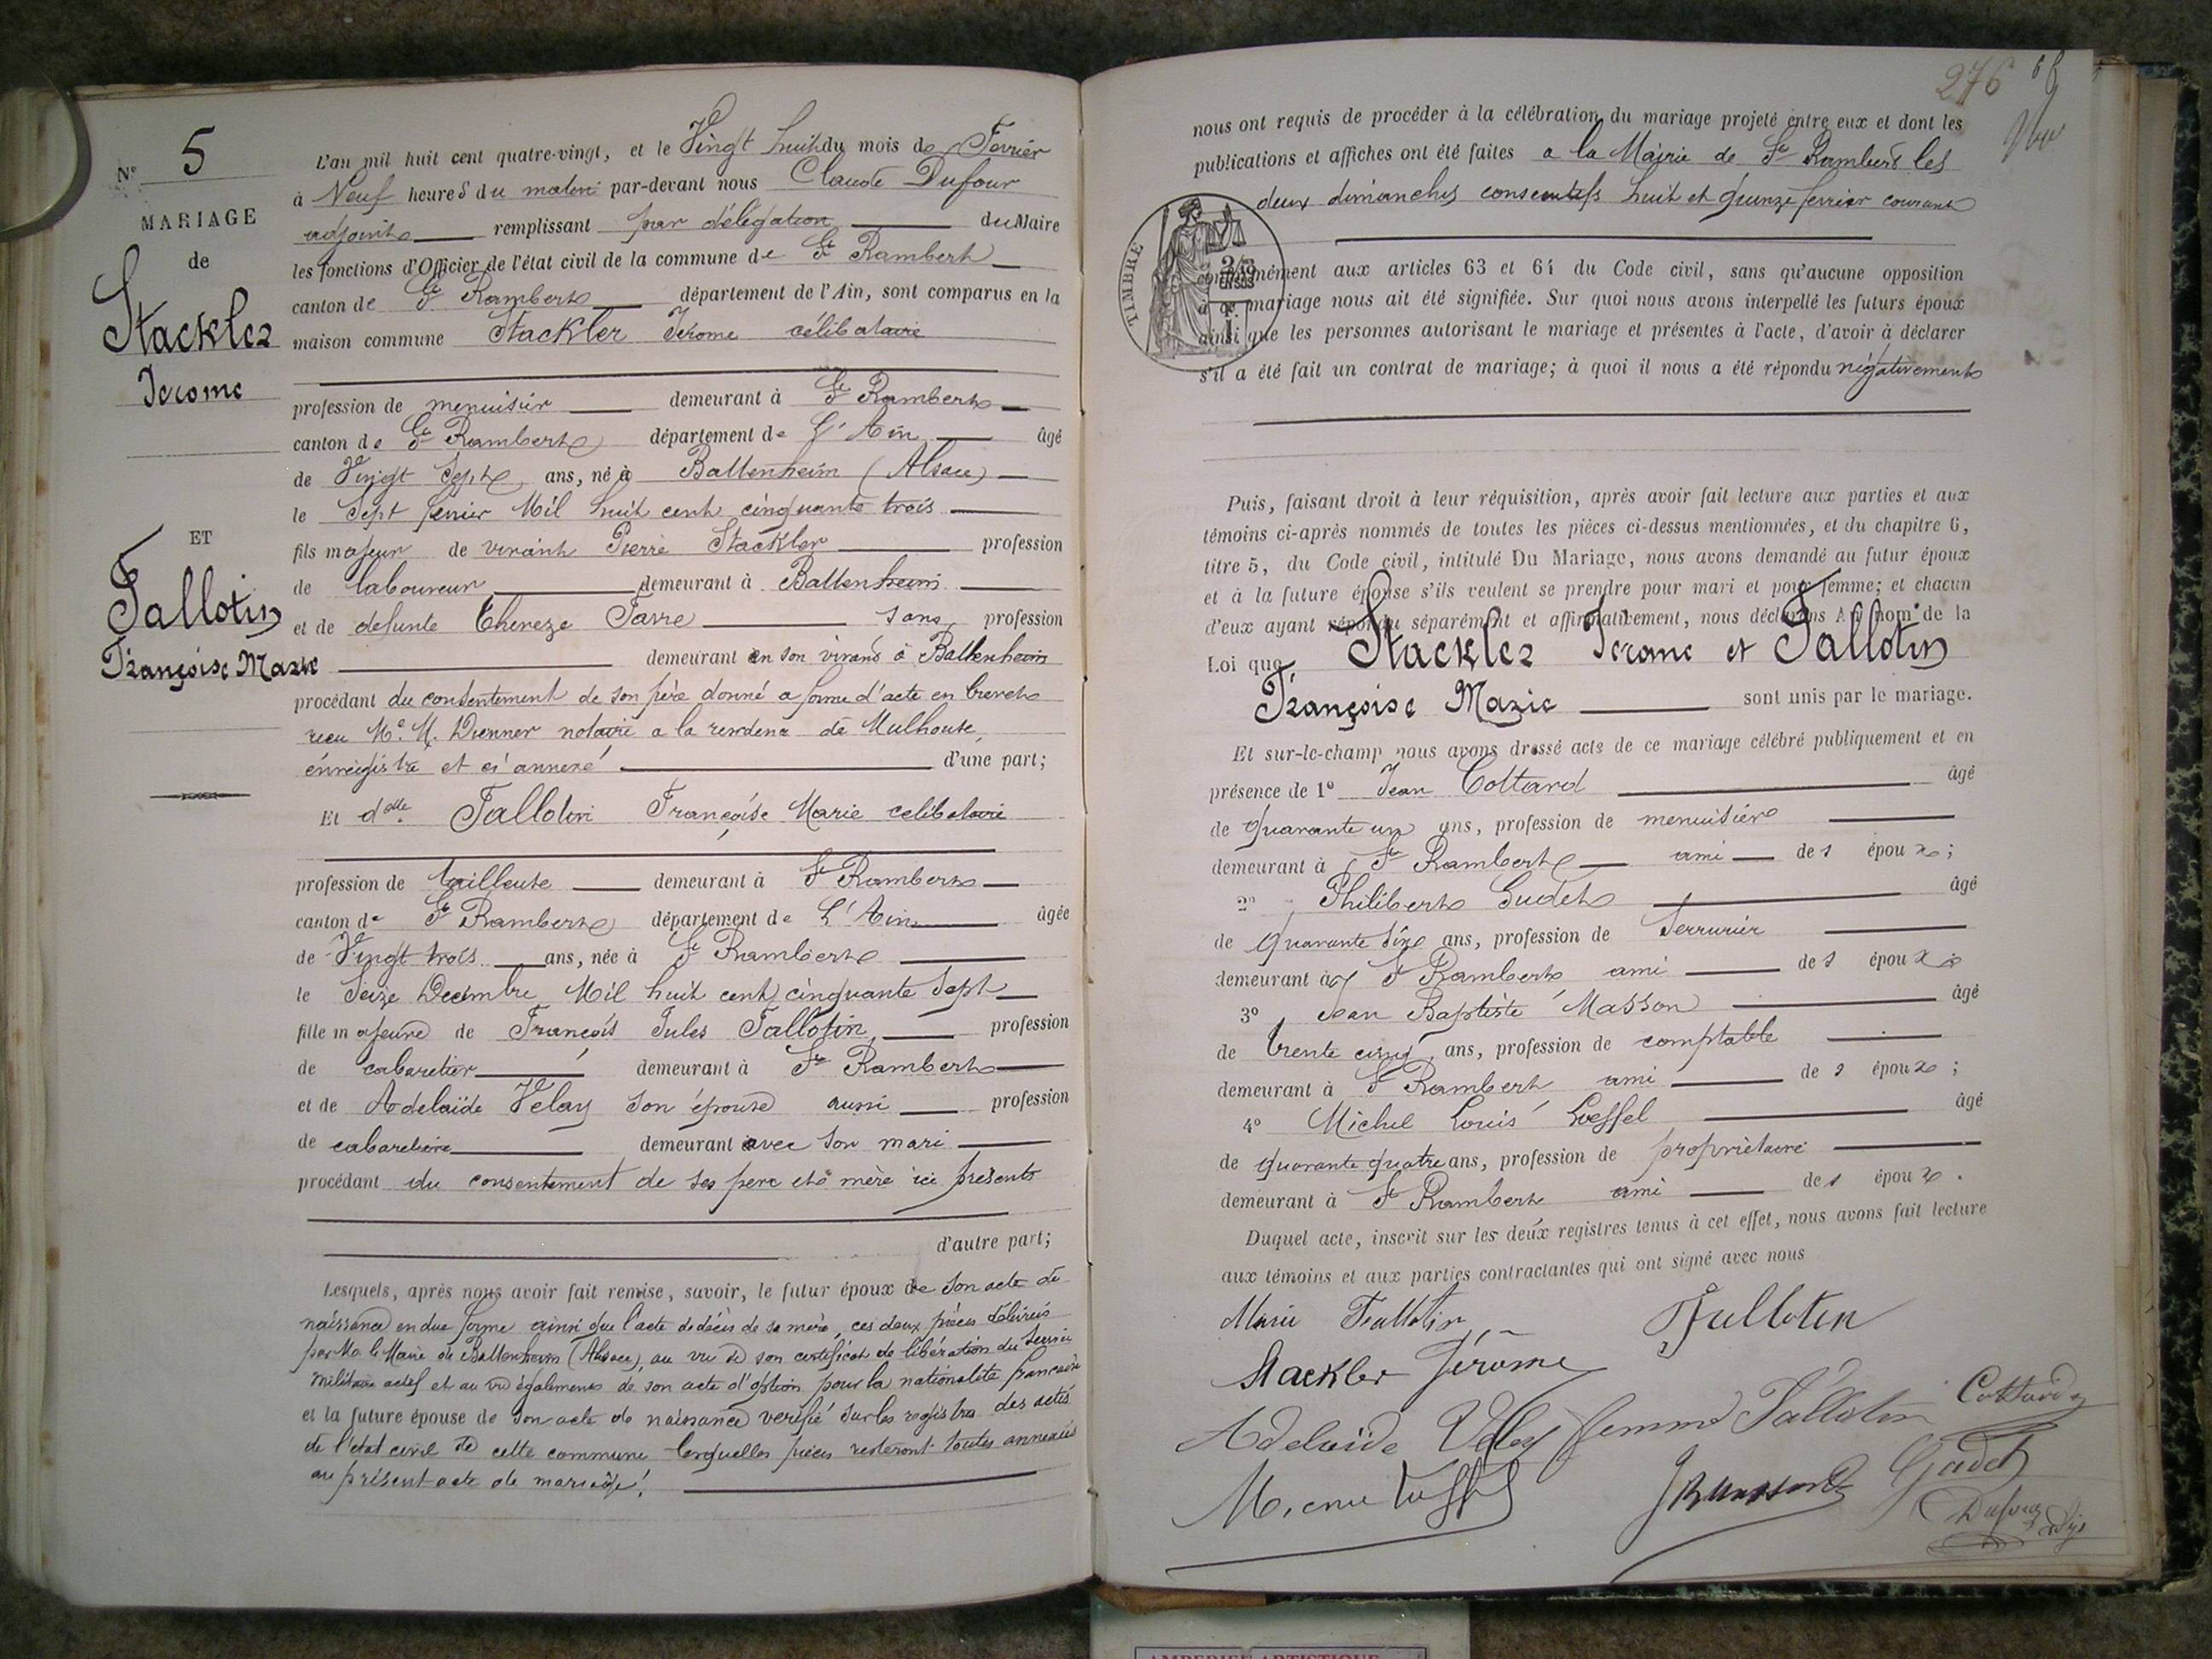 N° 5
MARIAGE
de
Stackler
Jerome
ET
Fallotin
Françoise Marie
L'an mil huit cent quatre-vingt, et le Vingt huit du mois de Fevrier
à Neuf heures du matin par-devant nous Claude Dufour
adjoint remplissant par délégation du Maire
les fonctions d'Officier de l'état civil de la commune de St Rambert
canton de St Rambert département de l'Ain, sont comparus en la
maison commune Stackler Jerome célibataire
profession de menuisier demeurant à St Rambert
canton de St Rambert département de L'Ain âgé
de Vingt Sept ans, né à Battenheim (Alsace)
le Sept fevrier Mil huit cent cinquante trois
fils majeur de vivant Pierre Stackler profession
de laboureur demeurant à Battenheim
et de defunte Thereze Favre sans profession
demeurant en son vivant à Battenheim
procédant du consentement de son père donné a forme d'acte en brevet
recu Me M. Dienner notaire a la residence de Mulhouse,
enregistré et ci annexé d'une part;
Et dlle Fallotin Françoise Marie celibataire
profession de tailleuse demeurant à St Rambert
canton de St Rambert département de L'Ain âgée
de Vingt trois ans, née à St Rambert
le Seize Decembre Mil huit cent cinquante Sept
fille majeure de François Jules Fallotin profession
de cabaretier demeurant à St Rambert
et de Adelaïde Velay son épouse aussi profession
de cabaretière demeurant avec son mari
procédant du consentement de ses pere et mère ici présents
d'autre part;
Lesquels, après nous avoir fait remise, savoir, le futur époux de son acte de
naissance en due forme ainsi que l'acte de décès de sa mère, ces deux pièces délivrés
par Mr le Maire de Battenheim (Alsace), au vu de son certificat de libération du service
militaire actif et au vu également de son acte d'option pour la nationalité française
et la future épouse de son acte de naissance verifié sur les registres des actes
de l'état civil de cette commune lesquelles pièces resteront toutes annexées
au présent acte de mariage.
276
nous ont requis de procéder à la célébration du mariage projeté entre eux et dont les
publications et affiches ont été faites a la Mairie de St Rambert les
deux dimanches consecutifs huit et quinze fevrier courant
TIMBRE
conformément aux articles 63 et 64 du Code civil, sans qu'aucune opposition
à ce mariage nous ait été signifiée. Sur quoi nous avons interpellé les futurs époux
ainsi que les personnes autorisant le mariage et présentes à l'acte, d'avoir à déclarer
s'il a été fait un contrat de mariage; à quoi il nous a été répondu négativement
Puis, faisant droit à leur réquisition, après avoir fait lecture aux parties et aux
témoins ci-après nommés de toutes les pièces ci-dessus mentionnées, et du chapitre 6,
titre 5, du Code civil, intitulé Du Mariage, nous avons demandé au futur époux
et à la future épouse s'ils veulent se prendre pour mari et pour femme; et chacun
d'eux ayant répondu séparément et affirmativement, nous déclarons Au nom de la
Loi que Stackler Jerome et Fallotin
Françoise Marie sont unis par le mariage.
Et sur-le-champ nous avons dressé acte de ce mariage célébré publiquement et en
présence de 1° Jean Cottard âgé
de quarante un ans, profession de menuisier
demeurant à St Rambert ami des époux;
2° Philibert Gudet âgé
de quarante six ans, profession de Serrurier
demeurant à St Rambert ami des époux
3° Jean Baptiste Masson âgé
de trente cinq ans, profession de comptable
demeurant à St Rambert ami des époux;
4° Michel Louis Loeffel âgé
de quarante quatre ans, profession de propriètaire
demeurant à St Rambert ami des époux.
Duquel acte, inscrit sur les deux registres tenus à cet effet, nous avons fait lecture
aux témoins et aux parties contractantes qui ont signé avec nous
Marie Fallotin Fallotin
Stackler Jérome
Adelaïde Velay femme Fallotin Cottard
JB Masson Gudet
Dufour adj